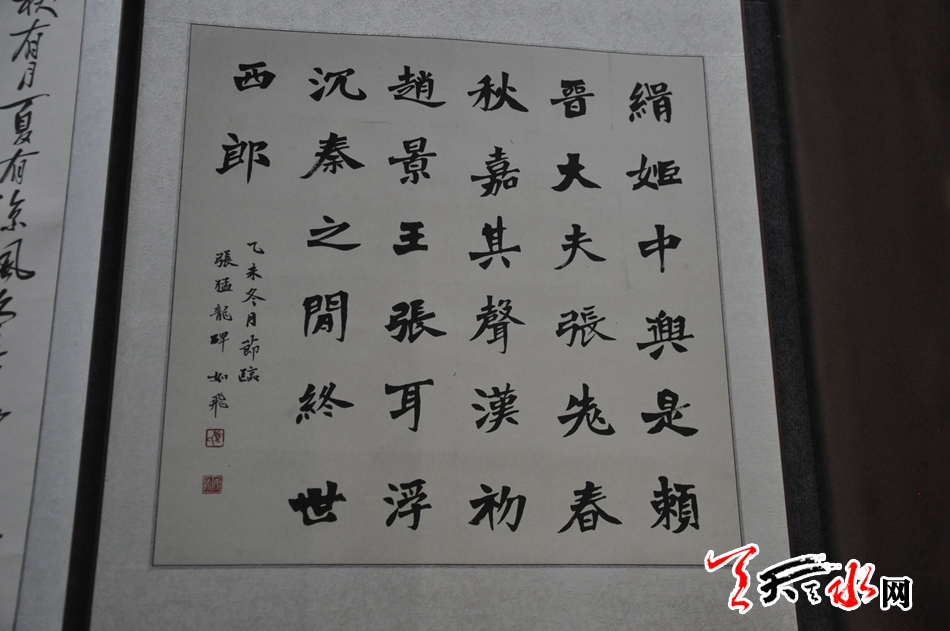 緝姬中興是賴
晉大夫張老春
秋嘉其聲漢初
趙景王張耳浮
沉秦之間終世
西郎
乙未冬月節臨
張猛龍碑 如飛
秋有月夏有涼風
天天水网